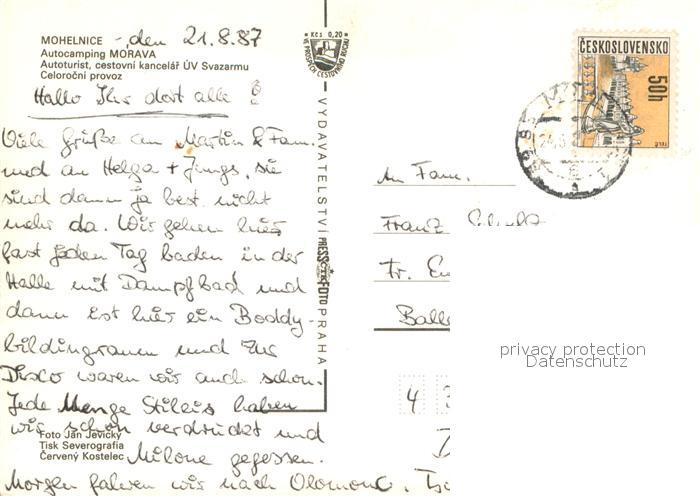 MOHELNICE -, den 21.8.87
Autocamping MORAVA
Autoturist, cestovní kancelář ÚV Svazarmu
Celoroční provoz
Hallo Ihr dort alle!
Viele Grüße an Martin & Fam.
und an Helga + Jungs, sie
sind dann ja best. nicht
mehr da. Wir gehen hier
fast jeden Tag baden in der
Halle mit Dampfbad und
dann ist hier ein Boddy-
bildingraum und zur
Disco waren wir auch schon.
Jede Menge Stileis haben
wir schon verdrückt und
Milone gegessen.
Morgen fahren wir nach Olomouc.
Foto Jan Jevický
Tisk Severografia
Červený Kostelec
VYDAVATELSTVÍ PRESSFOTO PRAHA
Kčs 0,20
VE PROSPĚCH CESTOVNÍHO RUCHU
ČESKOSLOVENSKO
50h
An Fam.
Franz
Fr. En
Balle
4
privacy protection
Datenschutz